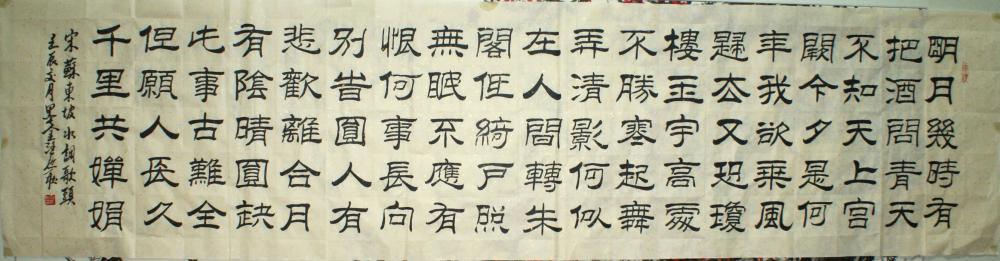 明月幾時有
把酒問青天
不知天上宮
闕今夕是何
年我欲乘風
歸去又恐瓊
樓玉宇高處
不勝寒起舞
弄清影何似
在人間轉朱
閣低綺戶照
無眠不應有
恨何事長向
別旹圓人有
悲歡離合月
有陰晴圓缺
此事古難全
但願人長久
千里共嬋娟
宋蘇東坡水調歌頭
壬辰